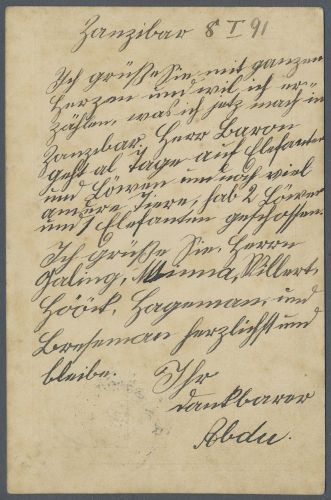 Zanzibar 8 I 91
Ich grüße Sie mit ganzen
Herzen und wil ich er-
zählen, was ich jetz mach in
Zanzibar. Herr Baron
geht al Tage auf Elefanten
und Löwen und noch viel
andere Tiere, hab 2 Löwen
und 1 Elefanten geschossen.
Ich grüße Sie, Herrn
Galing, Minna, Villert,
Hööck, Hageman, und
Breseman herzlichst und
bleibe. Ihr
dankbarer
Abdu.